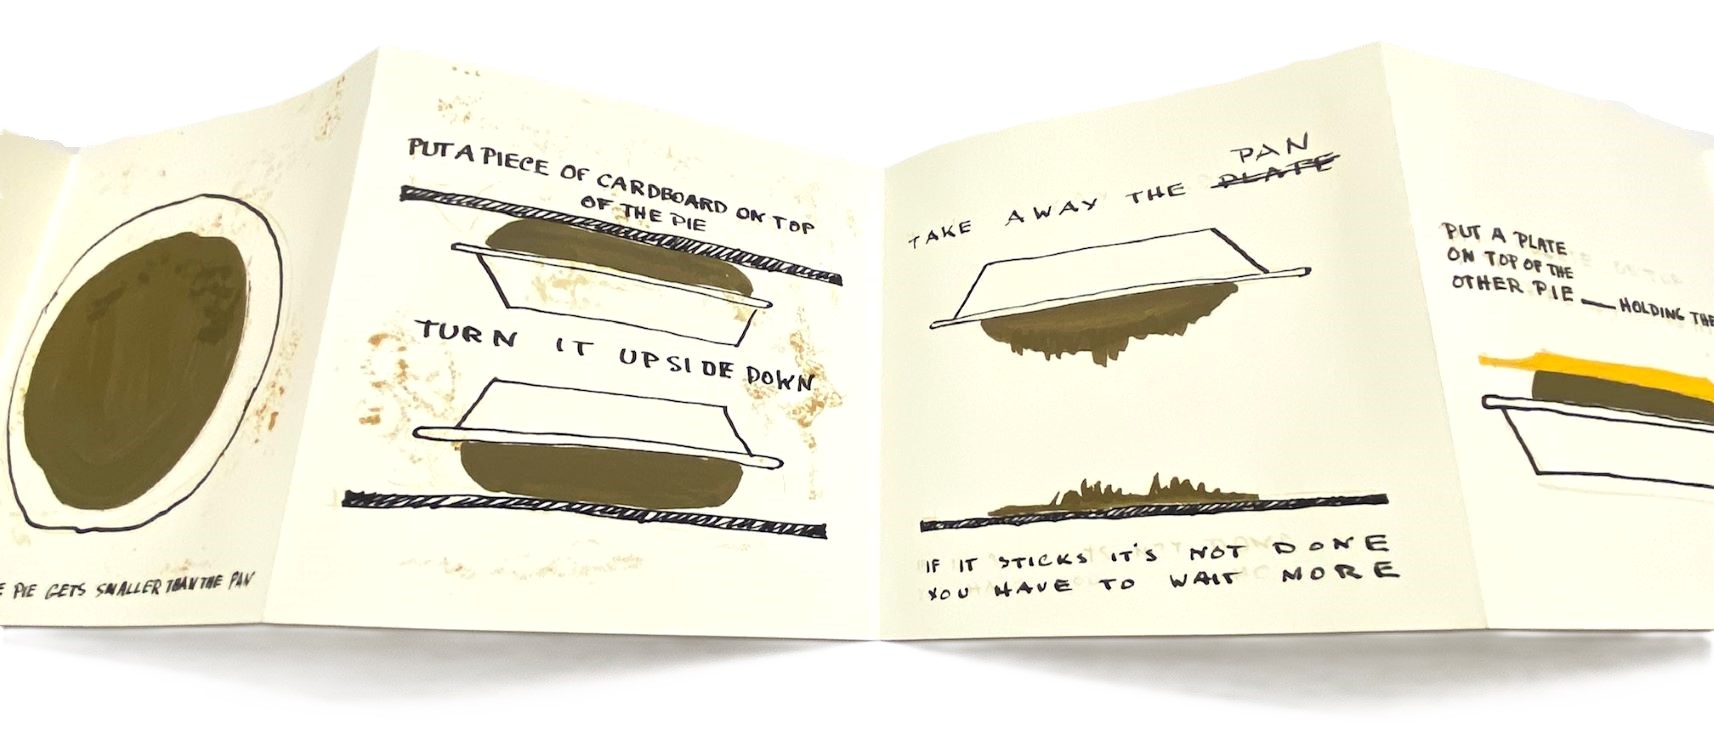 PIE GETS SMALLER THAN THE PAN
PUT A PIECE OF CARDBOARD ON TOP
OF THE PIE
TURN IT UPSIDE DOWN
PAN
TAKE AWAY THE PLATE
IF IT STICKS IT'S NOT DONE
YOU HAVE TO WAIT MORE
PUT A PLATE
ON TOP OF THE
OTHER PIE — HOLDING THE